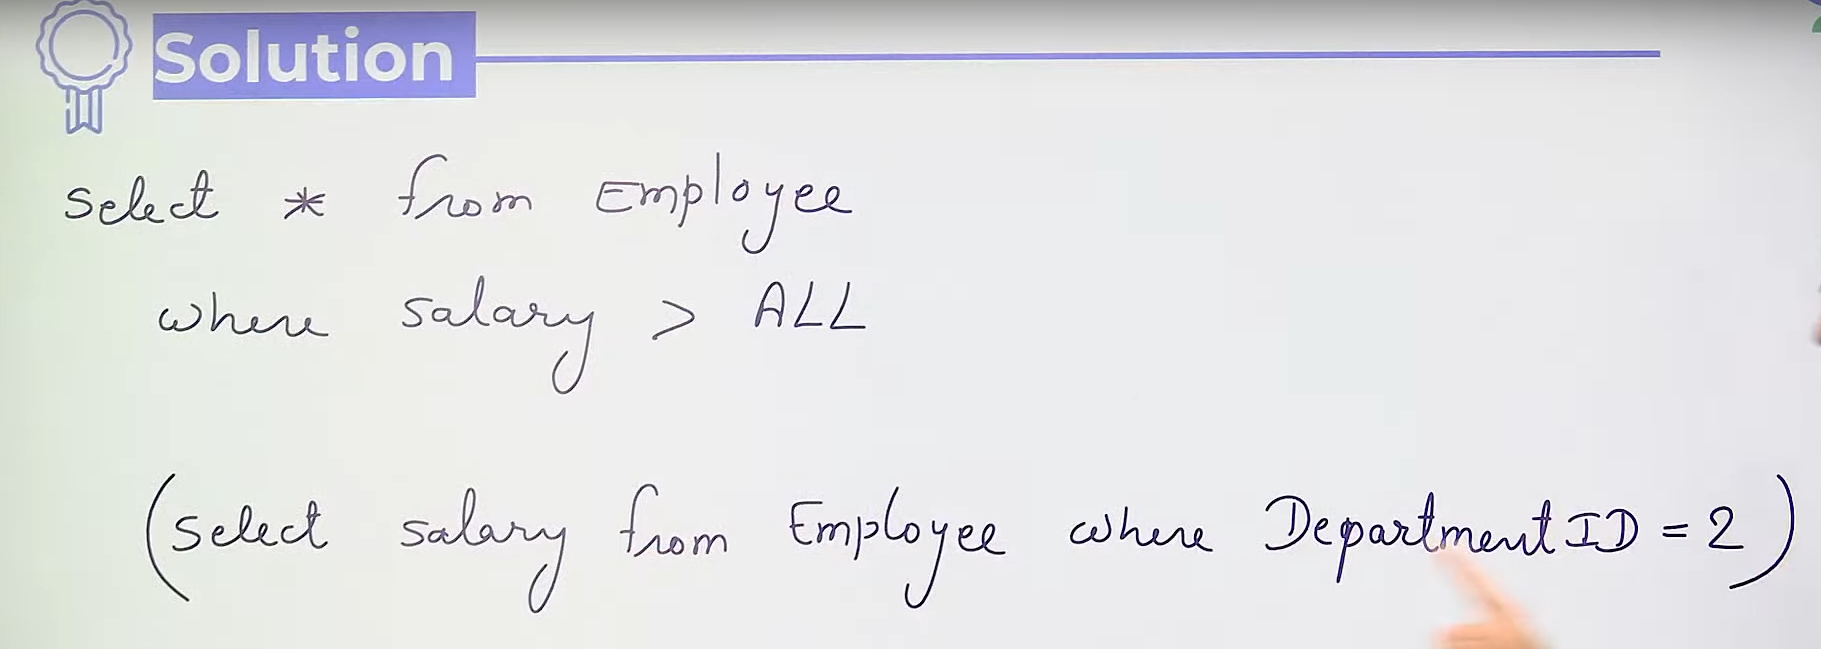 Solution
Select * from Employee
where salary > ALL
(Select salary from Employee where DepartmentID = 2)